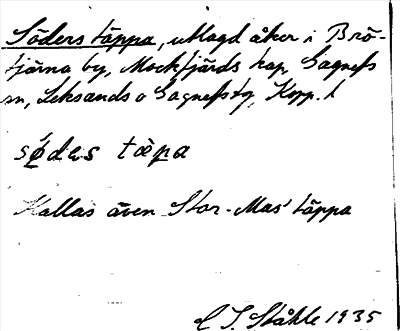 Söders täppa, utlagd åker i Brö-
tjärna by, Mockfjärds kap, Gagnefs
sn, Leksands o Gagnefs tg, Kopp. l
sǿdɛs tæ̀pa
Kallas även Stor-Mas' täppa
C I. Ståhle 1935